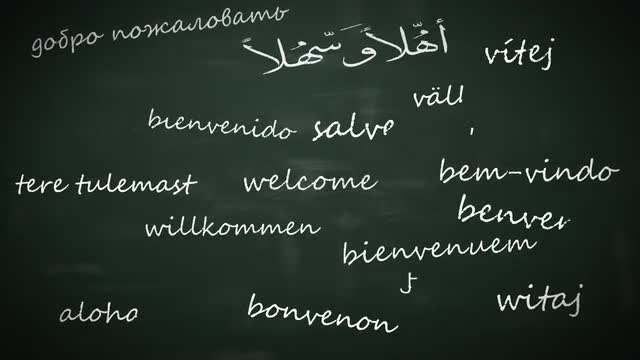 добро пожаловать
أهّلاً وَسَّهْلاً
vítej
väll
bienvenido
salve
tere tulemast
welcome
bem-vindo
willkommen
benve
bienvenuem
aloha
bonvenon
witaj